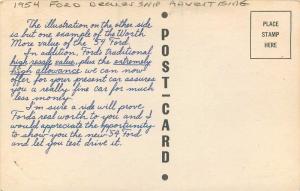 1954 FORD DEALERSHIP ADVERTISING
The illustration on the other side
is but one example of the Worth
More value of the '54 Ford.
In addition, Ford's traditional
high resale value, plus the extremely
high allowance we can now
offer for your present car assures
you a really fine car for much
less money.
I'm sure a ride will prove
Ford's real worth to you and I
would appreciate the opportunity
to show you the new '54 Ford
and let you test drive it.
POST-CARD
PLACE
STAMP
HERE